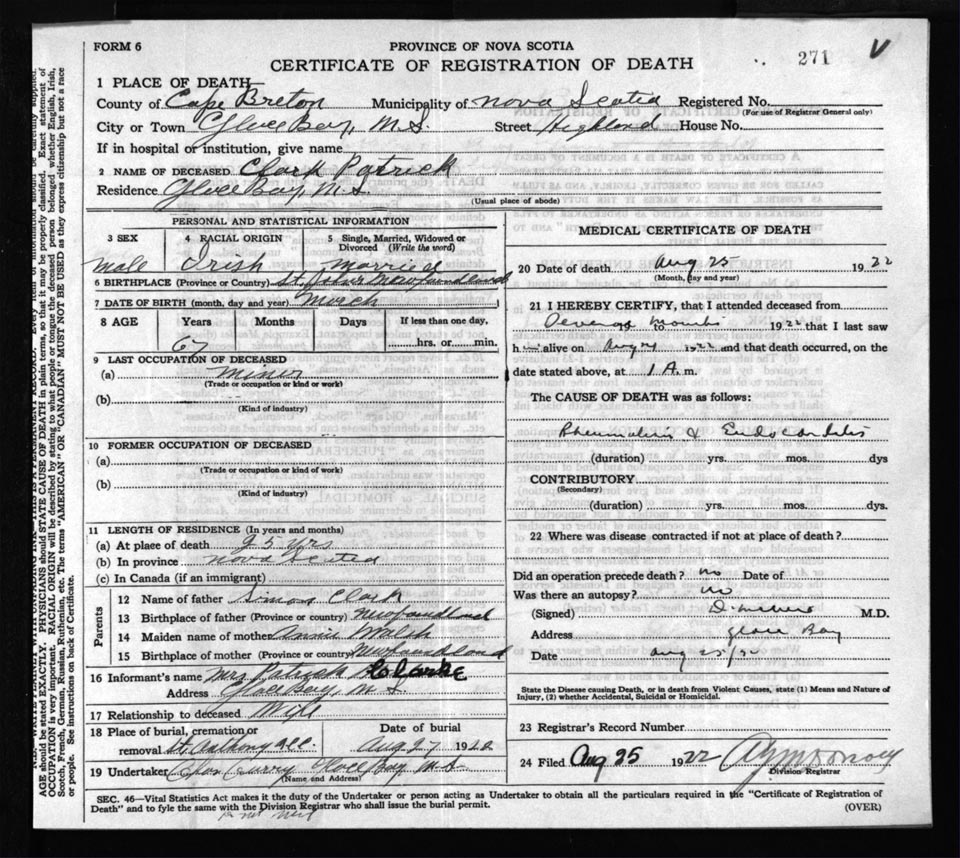 FORM 6
PROVINCE OF NOVA SCOTIA
CERTIFICATE OF REGISTRATION OF DEATH
271
V
1 PLACE OF DEATH—
County of Cape Breton Municipality of Nova Scotia Registered No.
(For use of Registrar General only)
City or Town Glace Bay, N.S. Street Highland House No.
If in hospital or institution, give name
2 NAME OF DECEASED Clark Patrick
Residence Glace Bay, N.S.
(Usual place of abode)
PERSONAL AND STATISTICAL INFORMATION
3 SEX 4 RACIAL ORIGIN 5 Single, Married, Widowed or Divorced (Write the word)
male Irish married
6 BIRTHPLACE (Province or Country) St. Johns Newfoundland
7 DATE OF BIRTH (month, day and year) March
8 AGE Years Months Days If less than one day,
67 hrs. or min.
9 LAST OCCUPATION OF DECEASED
(a) Miner
(Trade or occupation or kind or work)
(b)
(Kind of industry)
10 FORMER OCCUPATION OF DECEASED
(a)
(Trade or occupation or kind or work)
(b)
(Kind of industry)
11 LENGTH OF RESIDENCE (In years and months)
(a) At place of death 25 yrs
(b) In province Nova Scotia
(c) In Canada (if an immigrant)
Parents
12 Name of father Simon Clark
13 Birthplace of father (Province or country) Newfoundland
14 Maiden name of mother Annie Walsh
15 Birthplace of mother (Province or country) Newfoundland
16 Informant's name Mrs Patrick Clarke
Address Glace Bay, N.S.
17 Relationship to deceased Wife
18 Place of burial, cremation or removal St. Anthony
Date of burial Aug 27 1922
19 Undertaker Curry Glace Bay N.S.
(Name and Address)
MEDICAL CERTIFICATE OF DEATH
20 Date of death Aug 25 1922
(Month, day and year)
21 I HEREBY CERTIFY, that I attended deceased from
Several to months 1922 that I last saw
him alive on Aug 24 1922 and that death occurred, on the
date stated above, at 1 A. m.
The CAUSE OF DEATH was as follows:
Rheumatism & Endocarditis
(duration) yrs. mos. dys
CONTRIBUTORY
(Secondary)
(duration) yrs. mos. dys
22 Where was disease contracted if not at place of death?
Did an operation precede death? no Date of
Was there an autopsy? no
(Signed) M.D.
Address Glace Bay
Date Aug 25/22
State the Disease causing Death, or in death from Violent Causes, state (1) Means and Nature of
Injury, (2) whether Accidental, Suicidal or Homicidal.
23 Registrar's Record Number
24 Filed Aug 25 1922
Division Registrar
SEC. 46—Vital Statistics Act makes it the duty of the Undertaker or person acting as Undertaker to obtain all the particulars required in the "Certificate of Registration of
Death" and to fyle the same with the Division Registrar who shall issue the burial permit.
(OVER)
AGE should be stated EXACTLY. PHYSICIANS should STATE CAUSE OF DEATH in plain terms, so that it may be properly classified. Exact statement of
OCCUPATION is very important. RACIAL ORIGIN will be described by stating to what people or tongue the deceased person belonged whether English, Irish,
Scotch, French, German, Russian, Ruthenian, etc. The terms "AMERICAN" OR "CANADIAN" MUST NOT BE USED as they express citizenship but not a race
or people. See instructions on back of Certificate.